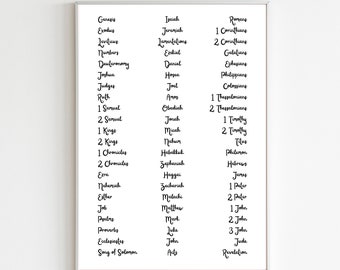 Genesis
Exodus
Leviticus
Numbers
Deuteronomy
Joshua
Judges
Ruth
1 Samuel
2 Samuel
1 Kings
2 Kings
1 Chronicles
2 Chronicles
Ezra
Nehemiah
Esther
Job
Psalms
Proverbs
Ecclesiastes
Song of Solomon
Isaiah
Jeremiah
Lamentations
Ezekiel
Daniel
Hosea
Joel
Amos
Obadiah
Jonah
Micah
Nahum
Habakkuk
Zephaniah
Haggai
Zechariah
Malachi
Matthew
Mark
Luke
John
Acts
Romans
1 Corinthians
2 Corinthians
Galatians
Ephesians
Philippians
Colossians
1 Thessalonians
2 Thessalonians
1 Timothy
2 Timothy
Titus
Philemon
Hebrews
James
1 Peter
2 Peter
1 John
2 John
3 John
Jude
Revelation